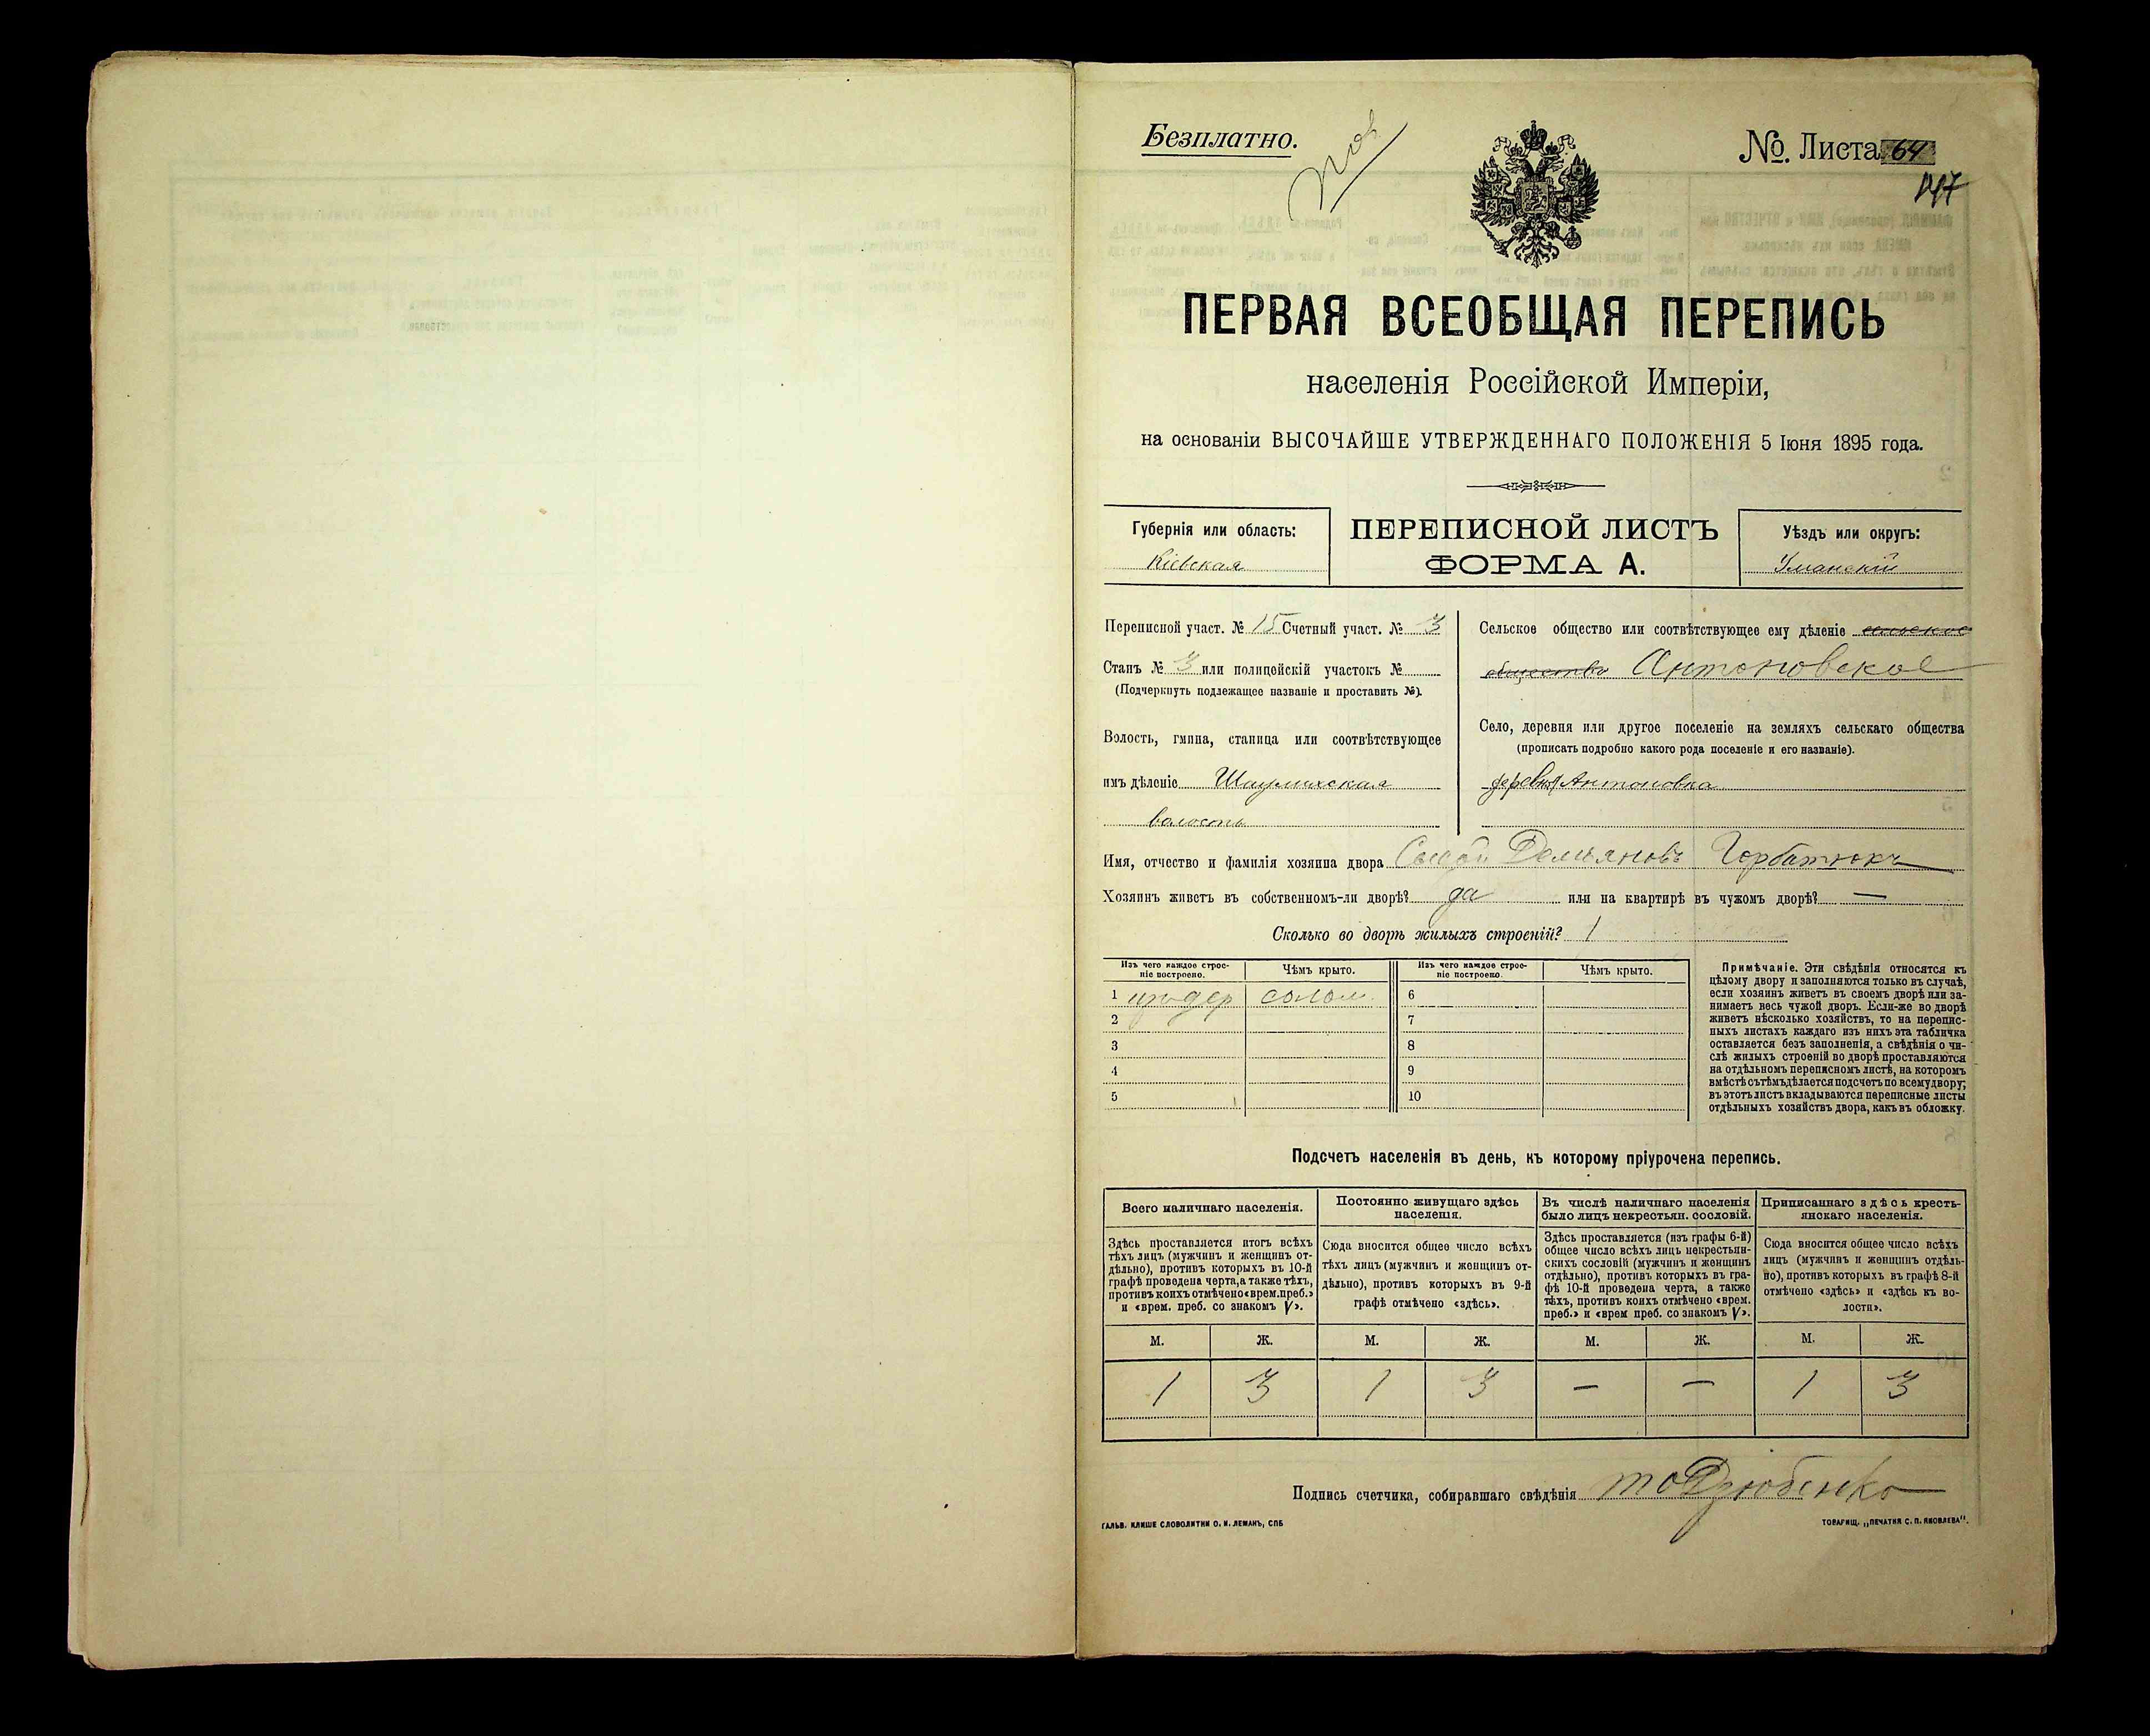 Безплатно.
№. Листа 64
147
ПЕРВАЯ ВСЕОБЩАЯ ПЕРЕПИСЬ
населенія Россійской Имперіи,
на основаніи ВЫСОЧАЙШЕ УТВЕРЖДЕННАГО ПОЛОЖЕНІЯ 5 Іюня 1895 года.
Губернія или область:
Кіевская
ПЕРЕПИСНОЙ ЛИСТЪ
ФОРМА А.
Уѣздъ или округъ:
Уманскій
Переписной участ. № 15 Счетный участ. № 3
Станъ № 3 или полицейскій участокъ №
(Подчеркнуть подлежащее названіе и проставить №).
Волость, гмина, станица или соотвѣтствующее
имъ дѣленіе
волость
Сельское общество или соотвѣтствующее ему дѣленіе сельское
общество Антоновское
Село, деревня или другое поселеніе на земляхъ сельскаго общества
(прописать подробно какого рода поселеніе и его названіе).
деревня Антоновка
Имя, отчество и фамилія хозяина двора Демьяновъ Горбатюкъ
Хозяинъ живетъ въ собственномъ-ли дворѣ? да или на квартирѣ въ чужомъ дворѣ? —
Сколько во дворѣ жилыхъ строеній? 1
Изъ чего каждое строе-
ніе построено.
Чѣмъ крыто.
Изъ чего каждое строе-
ніе построено.
Чѣмъ крыто.
1 солом 6
2 7
3 8
4 9
5 10
Примѣчаніе. Эти свѣдѣнія относятся къ
цѣлому двору и заполняются только въ случаѣ,
если хозяинъ живетъ въ своемъ дворѣ или за-
нимаетъ весь чужой дворъ. Если-же во дворѣ
живетъ нѣсколько хозяйствъ, то на перепис-
ныхъ листахъ каждаго изъ нихъ эта табличка
оставляется безъ заполненія, а свѣдѣнія о чи-
слѣ жилыхъ строеній во дворѣ проставляются
на отдѣльномъ переписномъ листѣ, на которомъ
вмѣстѣ съ тѣмъ дѣлается подсчетъ по всему двору;
въ этотъ листъ вкладываются переписные листы
отдѣльныхъ хозяйствъ двора, какъ въ обложку.
Подсчетъ населенія въ день, къ которому пріурочена перепись.
Всего наличнаго населенія.
Здѣсь проставляется итогъ всѣхъ
тѣхъ лицъ (мужчинъ и женщинъ от-
дѣльно), противъ которыхъ въ 10-й
графѣ проведена черта, а также тѣхъ,
противъ коихъ отмѣчено «врем. преб.»
и «врем. преб. со знакомъ V».
Постоянно живущаго здѣсь
населенія.
Сюда вносится общее число всѣхъ
тѣхъ лицъ (мужчинъ и женщинъ от-
дѣльно), противъ которыхъ въ 9-й
графѣ отмѣчено «здѣсь».
Въ числѣ наличнаго населенія
было лицъ некрестьян. сословій.
Здѣсь проставляется (изъ графы 6-й)
общее число всѣхъ лицъ некрестьян-
скихъ сословій (мужчинъ и женщинъ
отдѣльно), противъ которыхъ въ гра-
фѣ 10-й проведена черта, а также
тѣхъ, противъ коихъ отмѣчено «врем.
преб.» и «врем преб. со знакомъ V».
Приписаннаго здѣсь кресть-
янскаго населенія.
Сюда вносится общее число всѣхъ
лицъ (мужчинъ и женщинъ отдѣль-
но), противъ которыхъ въ графѣ 8-й
отмѣчено «здѣсь» и «здѣсь къ во-
лости».
М. Ж. М. Ж. М. Ж. М. Ж.
1 3 1 3 — — 1 3
Подпись счетчика, собиравшаго свѣдѣнія Дзюбенко
ГАЛЬВ. КЛИШЕ СЛОВОЛИТНИ О. И. ЛЕМАНЪ, СПБ
ТОВАРИЩ. „ПЕЧАТНЯ С. П. ЯКОВЛЕВА".